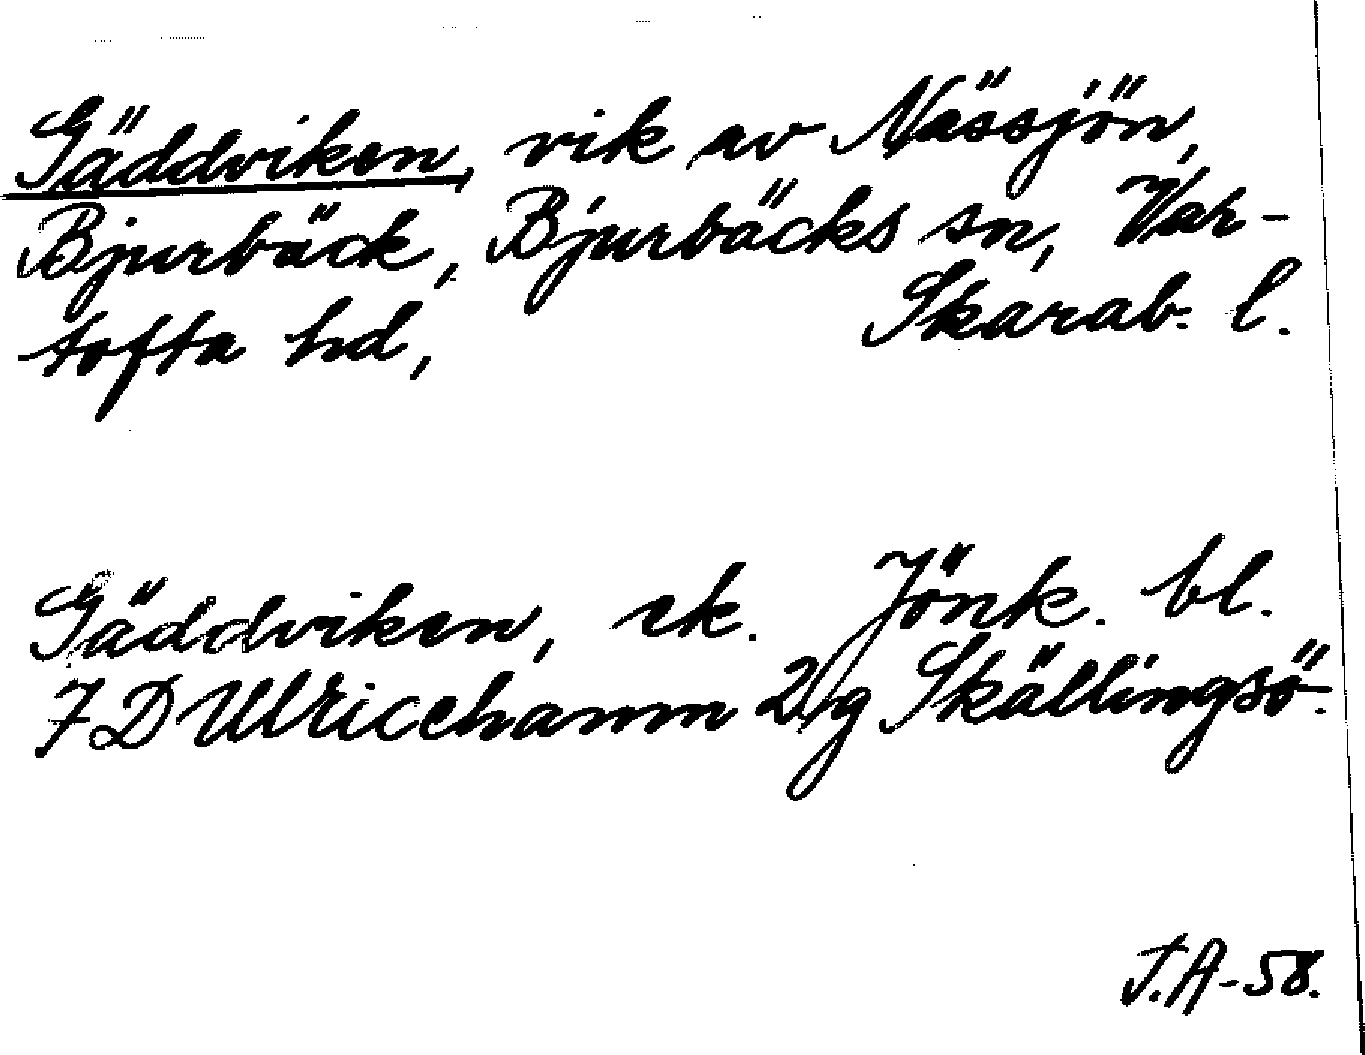 Gäddviken, vik av Nässjön,
Bjurbäck, Bjurbäcks sn, Var-
tofta hd, Skarab. l.
Gäddviken, ek. Jönk. bl.
7 D Ulricehamn 2 g Skällingsö.
J.A-58.